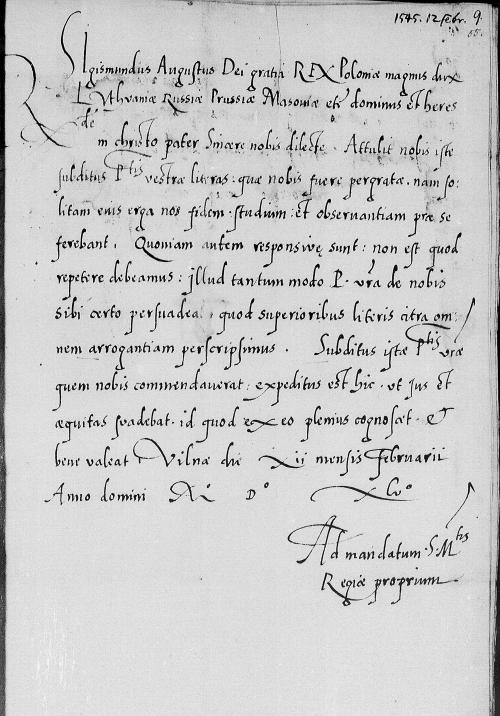 1545. 12 febr. 9.
55.
SIgismundus Augustus Dei gratia REX Poloniæ magnus dux
Lythvaniæ Russiæ Prussiæ Masoviæ etc dominus et heres
Rde
in christo pater Sincære nobis dilecte. Attulit nobis iste
subditus Ptis vestræ literas: quæ nobis fuere pergratæ. nam so:
litam eius erga nos fidem. studium: et observantiam præ se
ferebant. Quoniam autem responsivę sunt: non est quod
repetere debeamus: illud tantum modo P. vra de nobis
sibi certo persuadea, quod superioribus literis citra om:
nem arrogantiam perscripsimus. Subditus iste Ptis vræ
quem nobis commendaverat: expeditus est hic. vt jus et
æquitas svadebat. id quod ex eo plenius cognoscet. Et
bene valeat Vilnæ die Xii mensis Februarii
Anno domini Mo Do XLvo
Ad mandatum. S. Mtis
Regiæ proprium.